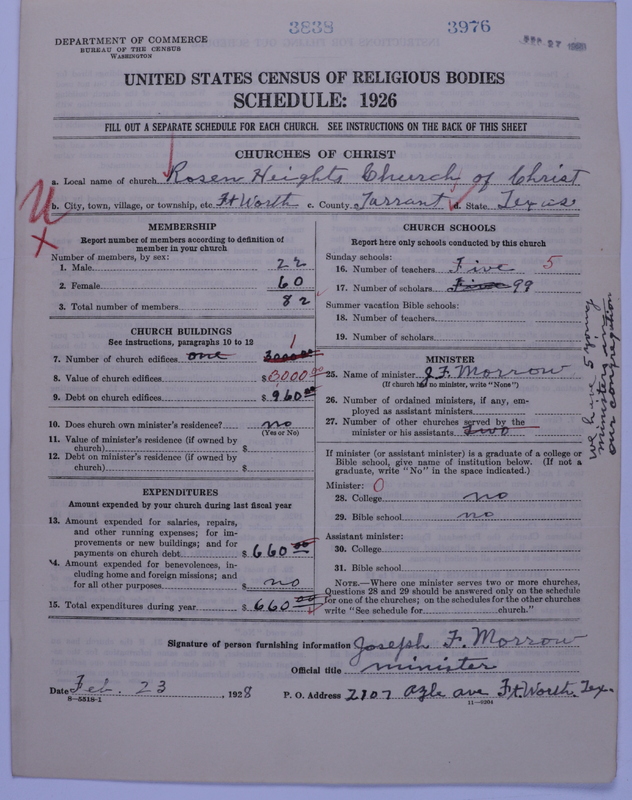 3838 3976
DEPARTMENT OF COMMERCE
BUREAU OF THE CENSUS
WASHINGTON
UNITED STATES CENSUS OF RELIGIOUS BODIES
SCHEDULE: 1926
FILL OUT A SEPARATE SCHEDULE FOR EACH CHURCH. SEE INSTRUCTIONS ON THE BACK OF THIS SHEET
CHURCHES OF CHRIST
a. Local name of church Rosen Heights Church of Christ
b. City, town, village, or township, etc. Ft Worth c. County Tarrant d. State Texas
MEMBERSHIP
Report number of members according to definition of
member in your church
Number of members, by sex:
1. Male 22
2. Female 60
3. Total number of members 82
CHURCH BUILDINGS
See instructions, paragraphs 10 to 12
7. Number of church edifices one 3000.00 1
8. Value of church edifices $ 3000.00
9. Debt on church edifices $ 960.00
10. Does church own minister's residence? no
(Yes or No)
11. Value of minister's residence (if owned by
church) $
12. Debt on minister's residence (if owned by
church) $
EXPENDITURES
Amount expended by your church during last fiscal year
13. Amount expended for salaries, repairs,
and other running expenses; for im-
provements or new buildings; and for
payments on church debt $ 660.00
14. Amount expended for benevolences, in-
cluding home and foreign missions; and
for all other purposes $ no
15. Total expenditures during year $ 660.00
CHURCH SCHOOLS
Report here only schools conducted by this church
Sunday schools:
16. Number of teachers Five 5
17. Number of scholars Five 99
Summer vacation Bible schools:
18. Number of teachers
19. Number of scholars
MINISTER
25. Name of minister J. F. Morrow
(If church has no minister, write "None")
26. Number of ordained ministers, if any, em-
ployed as assistant ministers
27. Number of other churches served by the
minister or his assistants Two
we have 5 young
ministers in
our congregation
If minister (or assistant minister) is a graduate of a college or
Bible school, give name of institution below. (If not a
graduate, write "No" in the space indicated.)
Minister: 0
28. College no
29. Bible school no
Assistant minister:
30. College
31. Bible school
NOTE.—Where one minister serves two or more churches,
Questions 28 and 29 should be answered only on the schedule
for one of the churches; on the schedules for the other churches
write "See schedule for church."
Signature of person furnishing information Joseph F. Morrow
Official title minister
Date Feb. 23, 1928 P. O. Address 2707 Azle ave Ft. Worth, Tex.
8—5518-1 11—9204